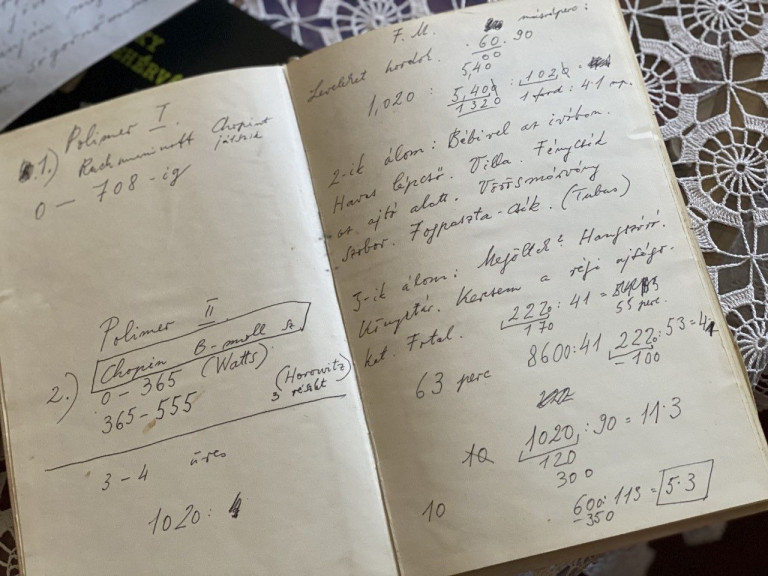 KY
HÉRVÁ
1.) Polimer I.
Rachmaninoff Chopint
játszik
0 — 708-ig
Polimer II.
2.) Chopin B-moll sz.
0 – 365 (Watts)
365 – 555 (Horowitz)
3 részlet
3 – 4 üres
1020:
F. M. másodperc:
Leveleket hordok. 60.90
00
5,40
1,020 : 5,400 : 1020
1320 1 ford: 4.1 mp.
2-ik álom: Bébivel az ivóban.
Havas lépcső. Villa. Fénycsík
az ajtó alatt. Vörösmárvány
szobor. Fogpaszta-csík. (Tubus)
3-ik álom: Megöltek? Hangszóró.
Könyvtár. Keresem a régi ujságo-
kat. 222 : 41 =
170 55 perc.
63 perc 8600:41 222:53=4
-100
1020 : 90 = 11.3
120
300
10 600:113 = 5.3
-350